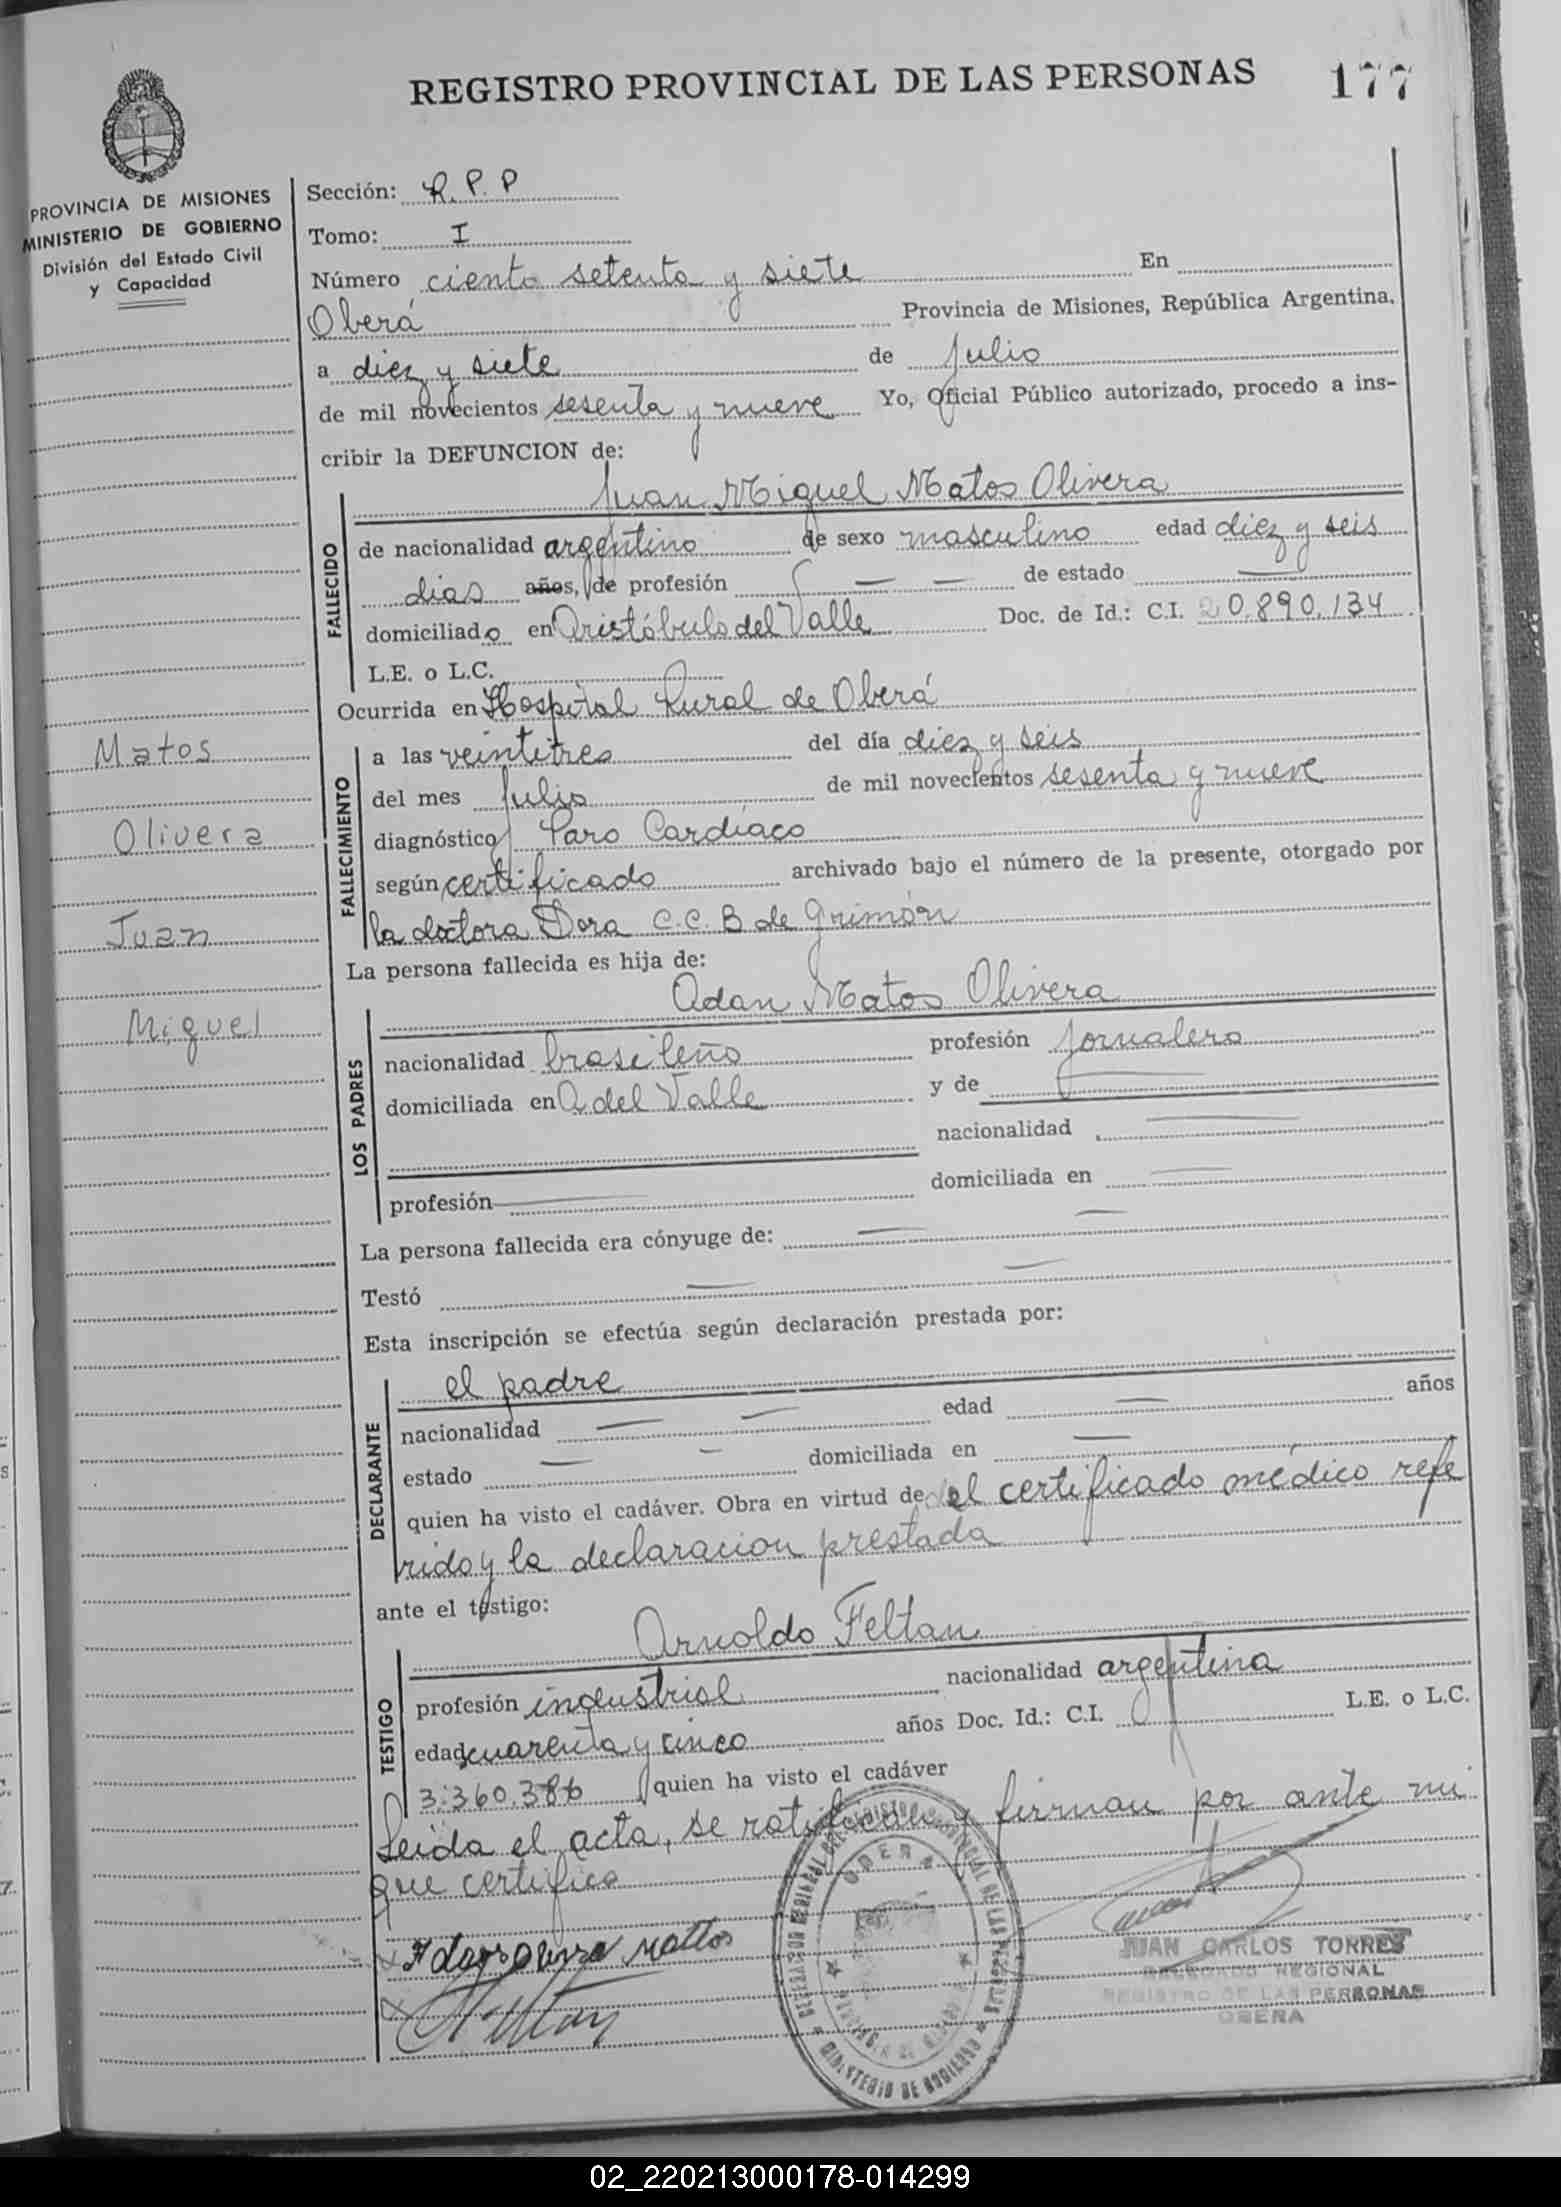 REGISTRO PROVINCIAL DE LAS PERSONAS 177
PROVINCIA DE MISIONES
MINISTERIO DE GOBIERNO
División del Estado Civil
y Capacidad
Sección: R.P.P
Tomo: I
Número ciento setenta y siete En
Oberá Provincia de Misiones, República Argentina,
a diez y siete de Julio
de mil novecientos sesenta y nueve Yo, Oficial Público autorizado, procedo a ins-
cribir la DEFUNCION de:
FALLECIDO
Juan Miguel Matos Olivera
de nacionalidad argentino de sexo masculino edad diez y seis
dias años, de profesión — — de estado —
domiciliado en Aristóbulo del Valle Doc. de Id.: C.I. 20.890.134
L.E. o L.C.
Ocurrida en Hospital Rural de Oberá
FALLECIMIENTO
a las veintitres del día diez y seis
del mes Julio de mil novecientos sesenta y nueve
diagnóstico Paro Cardíaco
según certificado archivado bajo el número de la presente, otorgado por
la doctora Dora C.C.B de Grimón
La persona fallecida es hija de:
Matos
Olivera
Juan
Miguel
LOS PADRES
Adan Matos Olivera
nacionalidad brasileño profesión Jornalero
domiciliada en A del Valle y de —
nacionalidad —
profesión — domiciliada en —
La persona fallecida era cónyuge de: — —
Testó — —
Esta inscripción se efectúa según declaración prestada por:
DECLARANTE
el padre
nacionalidad — — edad — años
estado — — domiciliada en —
quien ha visto el cadáver. Obra en virtud de del certificado médico refe
rido y la declaracion prestada
ante el testigo:
TESTIGO
Arnoldo Feltan
profesión industrial nacionalidad argentina
edad cuarenta y cinco años Doc. Id.: C.I. L.E. o L.C.
3.360.386 quien ha visto el cadáver
Leida el acta, se ratifican y firman por ante mi
que certifico
OBERA
MINISTERIO DE GOBIERNO
JUAN CARLOS TORRES
DELEGADO REGIONAL
REGISTRO DE LAS PERSONAS
OBERA
02_220213000178-014299